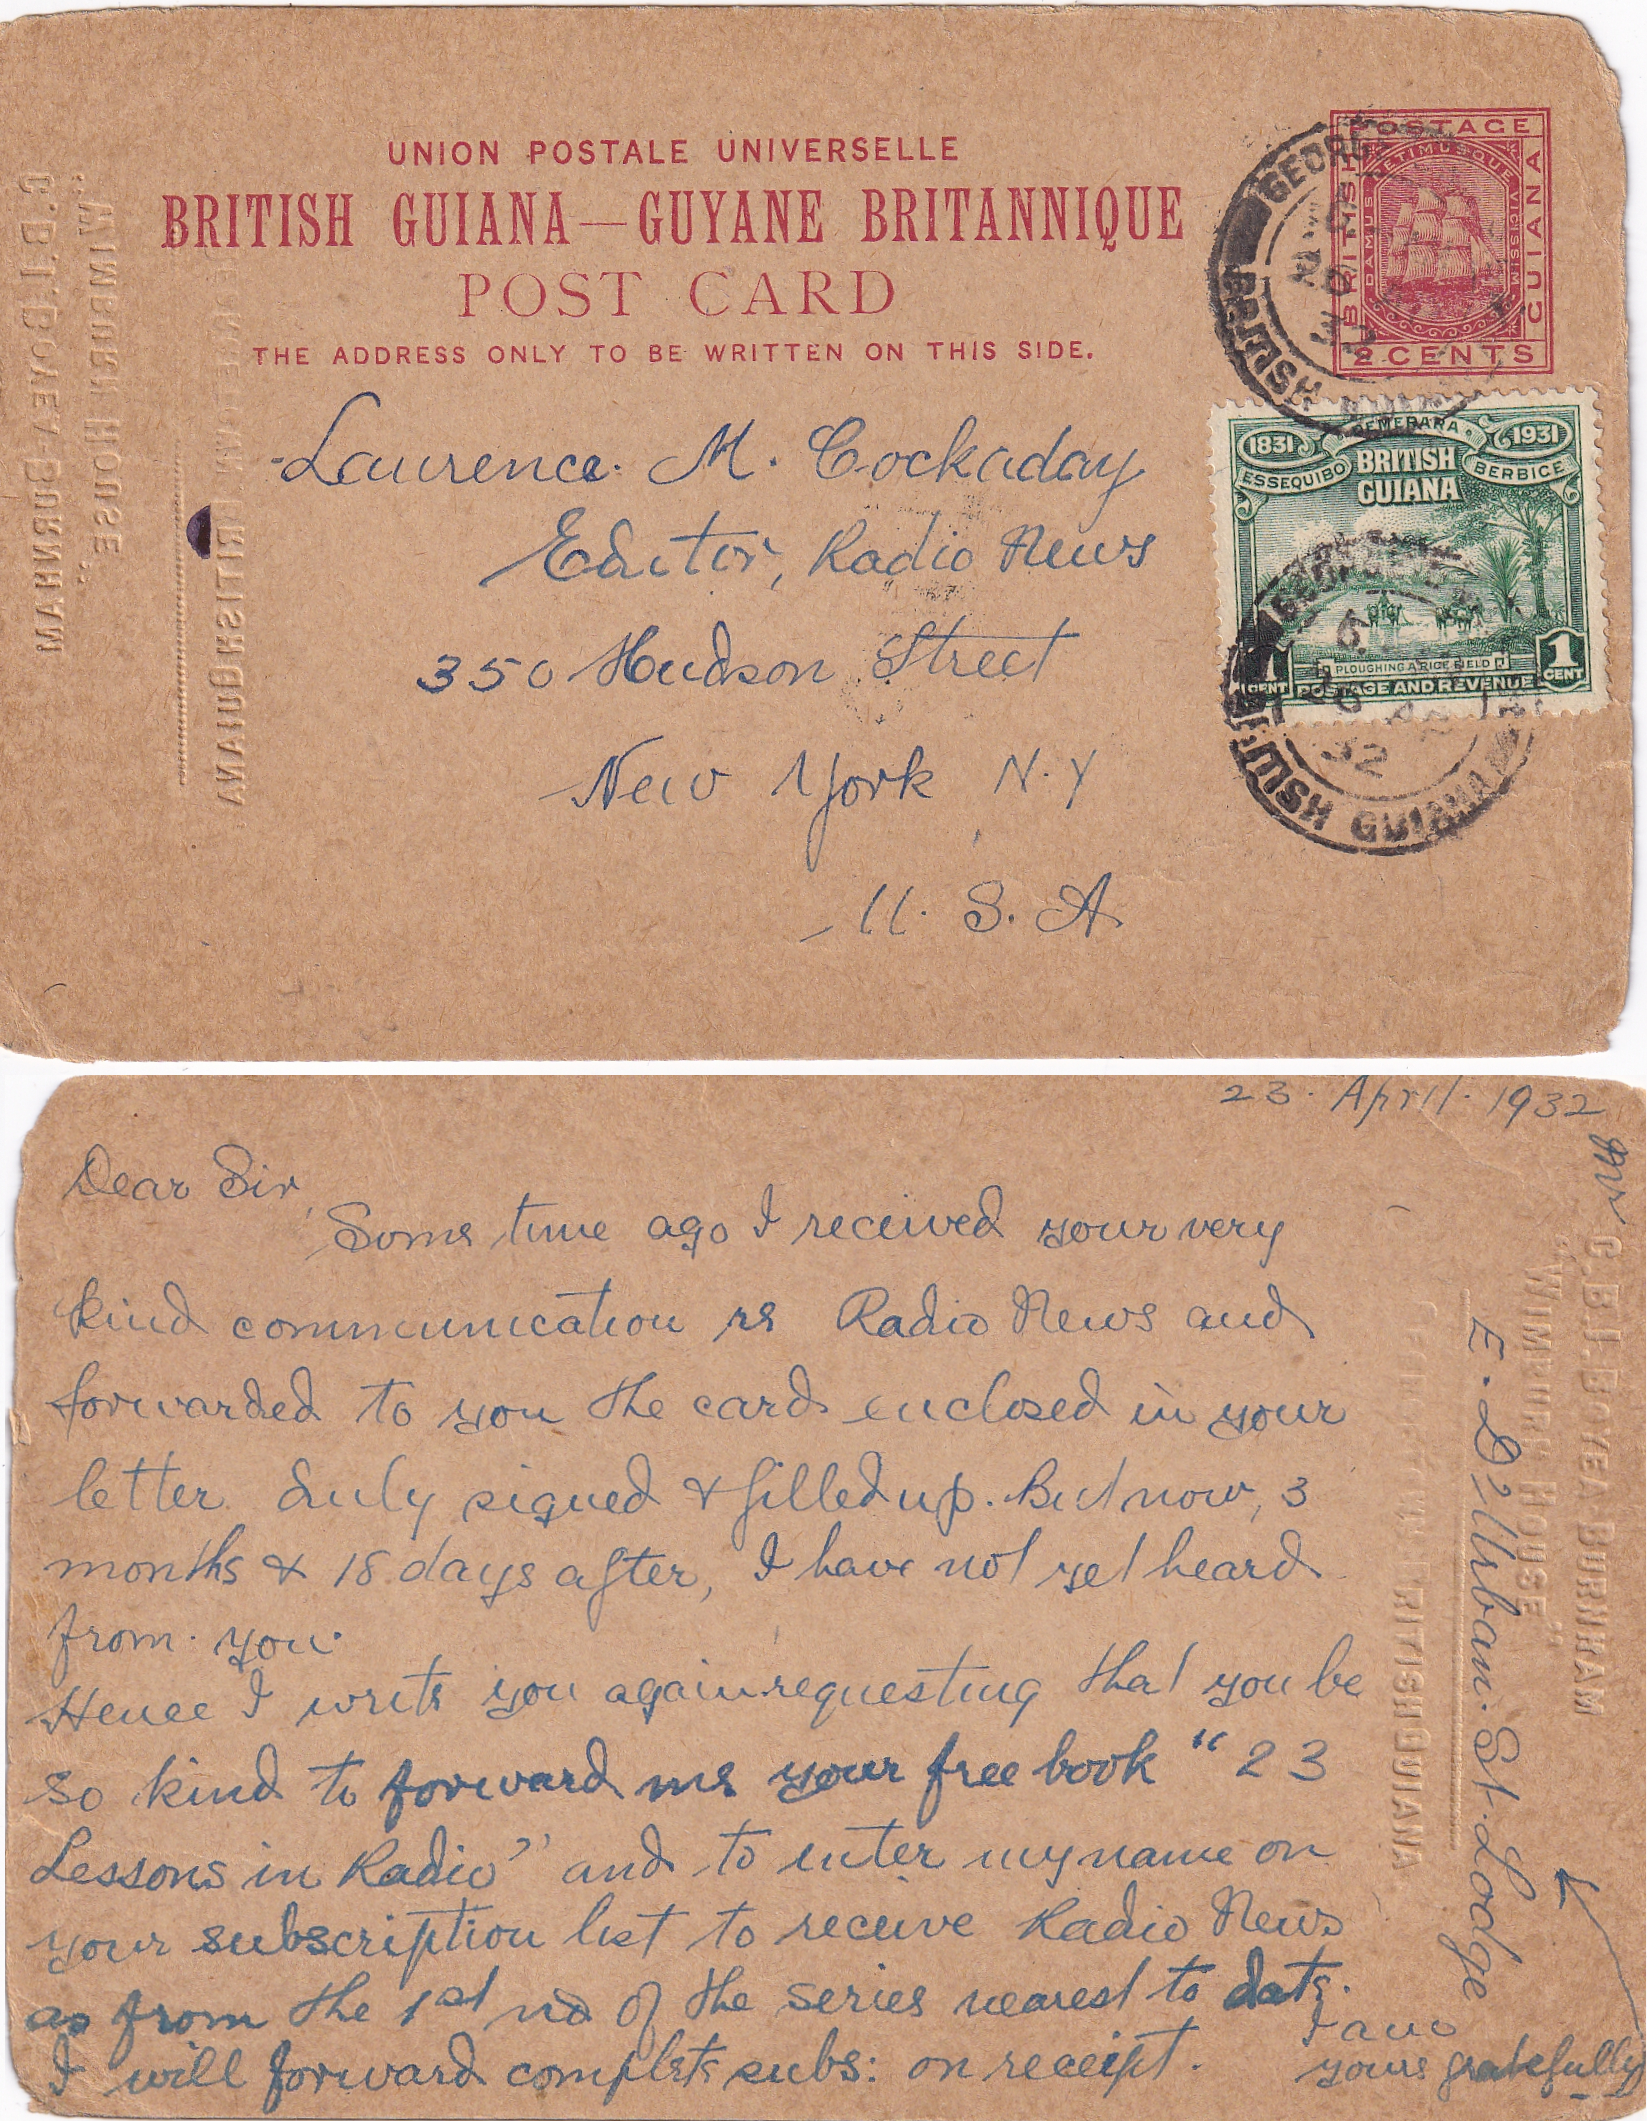 UNION POSTALE UNIVERSELLE
BRITISH GUIANA—GUYANE BRITANNIQUE
POST CARD
THE ADDRESS ONLY TO BE WRITTEN ON THIS SIDE.
POSTAGE
BRITISH
GUIANA
DAMUS PETIMUSQUE VICISSIM
2 CENTS
GEORGE
BRITISH
1831
DEMERARA
1931
ESSEQUIBO
BRITISH
GUIANA
BERBICE
PLOUGHING A RICE FIELD
1 CENT
POSTAGE AND REVENUE
1 CENT
32
BRITISH GUIANA
Laurence M. Cockaday
Editor, Radio News
350 Hudson Street
New York N.Y
U. S. A
C. B. I. BOYEA BURNHAM
"WIMBURN HOUSE"
BRITISH GUIANA
23. April. 1932
Dear Sir,
Some time ago I received your very
kind communication re Radio News and
forwarded to you the card enclosed in your
letter duly signed & filled up. But now, 3
months & 18 days after, I have not yet heard
from you.
Hence I write you again requesting that you be
so kind to forward me your free book "23
Lessons in Radio" and to enter my name on
your subscription list to receive Radio News
as from the 1st no of the series nearest to date.
I will forward complete subs: on receipt.
I am
yours gratefully
Mr
C. B. I. BOYEA BURNHAM
"WIMBURN HOUSE"
E. D'Urban St. Lodge
BRITISH GUIANA